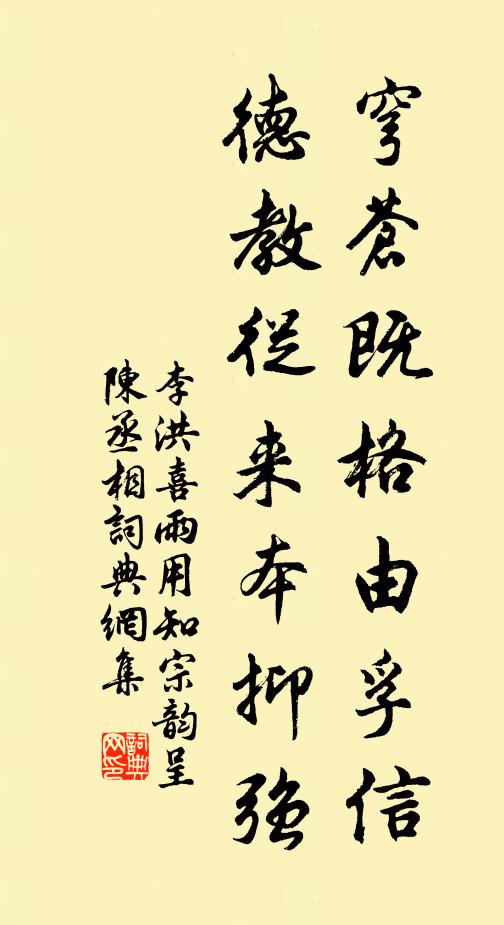 穹蒼既格由孚信
德教從来本抑强
李洪喜雨用知宗韵呈
陳丞相詞典網集
詞典
网印